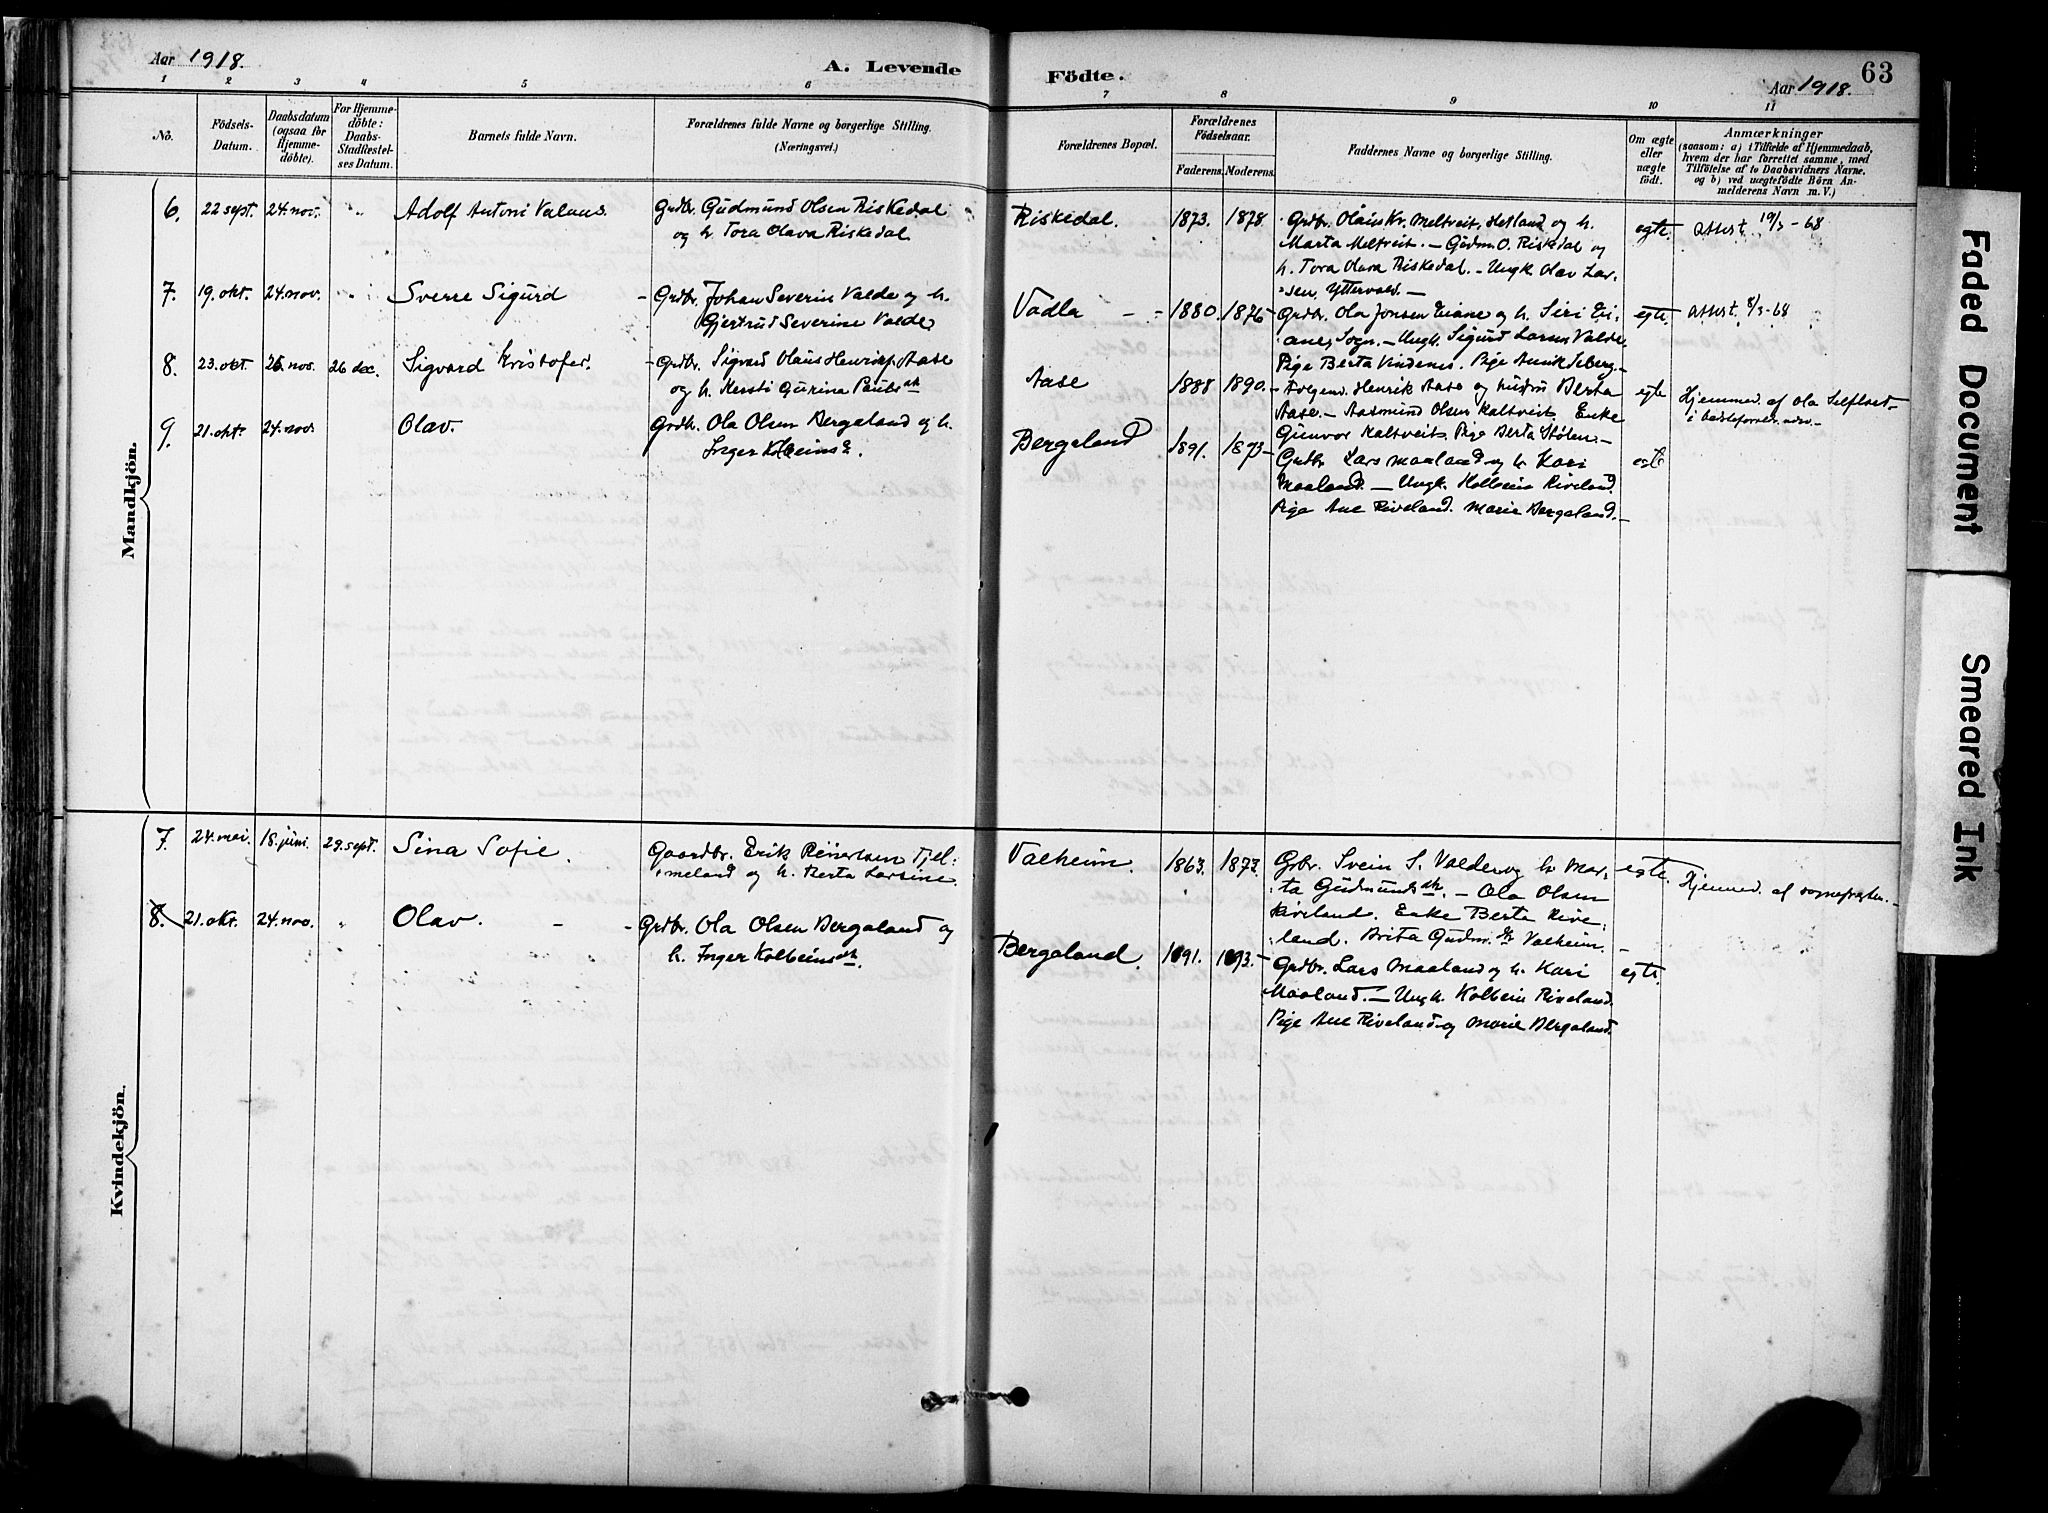 Aar 1918.
A. Levende Födte.
Aar 1918.
63
1 2 3 4 5 6 7 8 9 10 11
No.
Födsels-Datum.
Daabsdatum (ogsaa for Hjemmedöbte).
For Hjemmedöbte: Daabs-Stadfestelses Datum.
Barnets fulde Navn.
Forældrenes fulde Navne og borgerlige Stilling.
(Næringsvei.)
Forældrenes Bopæl.
Forældrenes Födselsaar.
Faderens. Moderens.
Faddernes Navne og borgerlige Stilling.
Om ægte eller uægte födt.
Anmærkninger
(saasom: a) i Tilfælde af Hjemmedaab, hvem der har forrettet samme, med Tilföielse af to Daabsvidners Navne, og b) ved uægtefödte Börn Anmelderens Navn m. V.)
Mandkjön.
6. 22 sept. 24. nov. " Adolf Antoni Valaus. Grdbr. Gudmund Olsen Riskedal
og h. Tora Olava Riskedal
Riskedal. 1873. 1878. Grdbr. Olaus Kr. Meltveit, Hetland og h.
Marta Meltveit. – Gudm. O. Riskedal og
h. Tora Olava Riskedal. – Ungk. Olav Larsen, Yttervold. –
egte. attest. 19/3-68
7. 19. okt. 24. nov. " Sverre Sigurd - Grdbr. Johan Severin Valde og h.
Gjertrud Severine Valde
Vadla - - 1880. 1876 - Grdbr. Ola Jonsen Eiane og h. Siri Eiane, Sogn. – Ungk. Sigurd Larsen Valde
Pige Berta Vindenes. Pige
egte. attest. 8/3-68
8. 23. okt. 26. nov. 26 dec. Sigvard Kristofer. - Grdbr. Sigvard Olaus Henriks. Aase
og h. Kersti Gurina Paulsdtr
Aase 1888 1890. - Henrik Aase og hustru Berta
Aase. – Aasmund Olsen Kaltveit. Enke
Gunvor Kaltveit. Pige Berta Stølen. –
egte Hjemmed. af Ola
9. 21. okt. 24. nov. Olav. Grdb. Ola Olsen Bergaland og h.
Inger Kolbeinsd.
Bergaland 1891. 1893 - Grdbr Lars Maaland og h. Kari
Maaland. – Ungk. Kolbein Riveland.
Pige Ane Riveland. Marie Bergaland. –
egte
Kvindekjön.
7. 24. mai. 18. juni. 29. sept. Sina Sofie. Gaardbr. Erik Reiertsen Tjelmeland og h. Berta Larsine.
Valheim. 1863. 1873. Grbr. Svein S. Valde og h. Marta Gudmundsdtr. – Ola Olsen
Riveland. Enke Berta Riveland. Brita Gudm.dtr Valheim. –
egte Hjemmed. af sognepresten. –
8. 21. okt. 24. nov. " Olav. - - Grdbr. Ola Olsen Bergaland og
h. Inger Kolbeinsdtr.
Bergaland. 1891. 1893. - Grdbr. Lars Maaland og h. Kari
Maaland. – Ungk. Kolbein Riveland.
Pige Ane Riveland og Marie Bergaland.
egte.
Faded Document
Smeared Ink